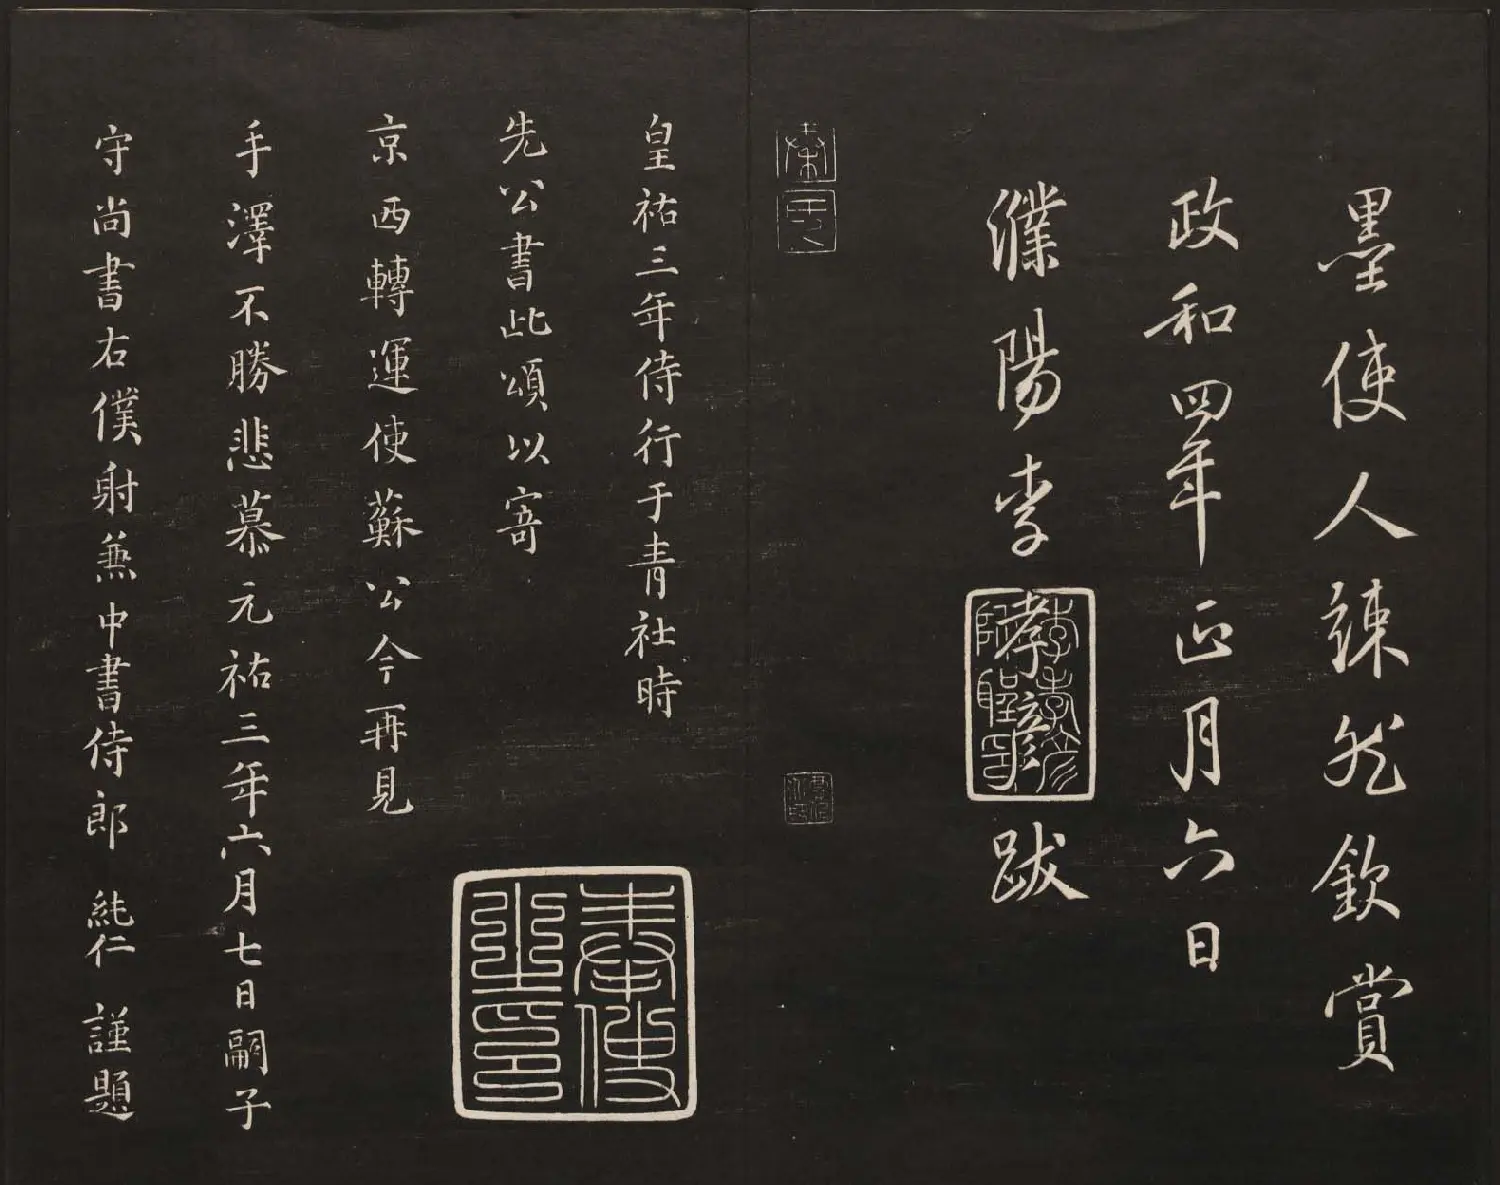 墨使人諫然欽賞
政和四年正月六日
濮陽李孝彥跋
皇祐三年侍行于青社時
先公書此頌以寄
京西轉運使蘇公今再見
手澤不勝悲慕元祐三年六月七日嗣子
守尚書右僕射兼中書侍郎純仁謹題